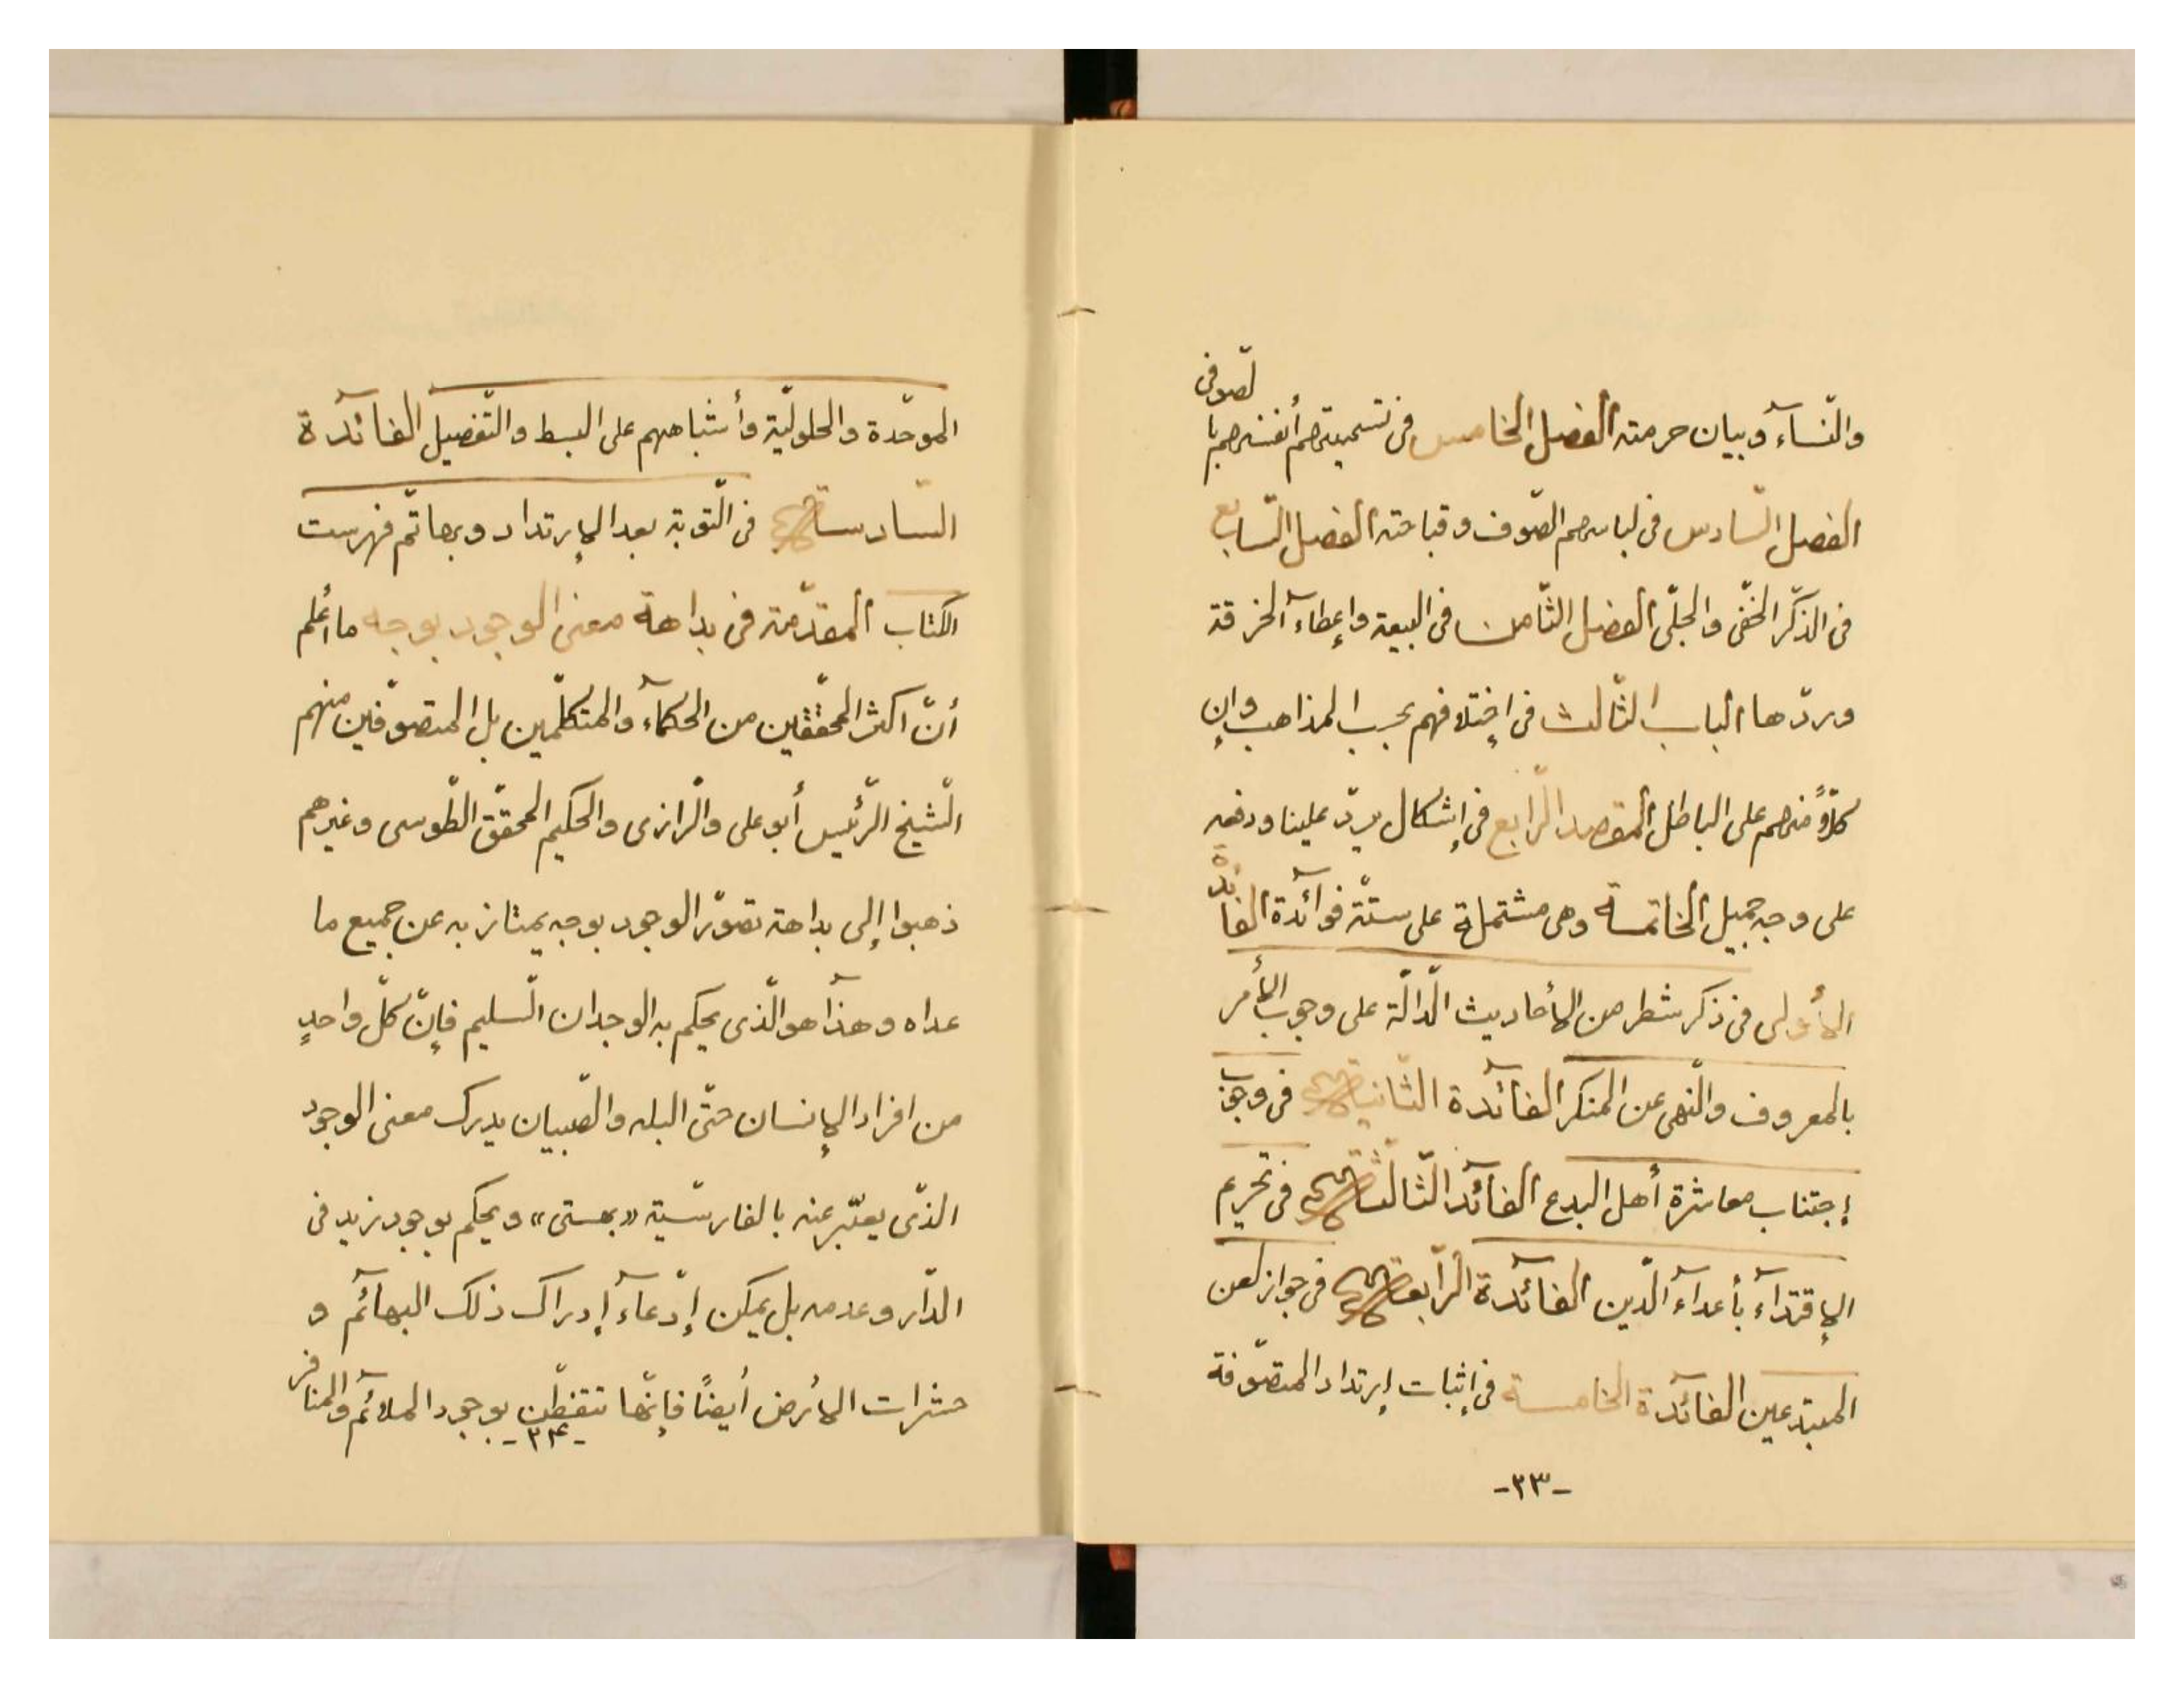 والنّسآء وبيان حرمته الفصل الخامس فى تسميتهم أنفسهم با
لصوفى
الفصل السّادس فى لباسهم الصّوف وقباحته الفصل السّابع
فى الذّكر الخفّى والجلّى الفصل الثّامن فى البيعة وإعطاء الخرقة
وردّها الباب الثّالث فى إختلافهم بحسب المذاهب وإن
كلاًّ منهم على الباطل المقصد الرّابع فى إشكال يردّ علينا ودفعه
على وجه جميل الخاتمة وهى مشتملة على ستّة فوآئدة الفائدة
الأولى فى ذكر شطر من الأحاديث الدّالّة على وجوب الأمر
بالمعروف والنّهى عن المنكر الفآئدة الثّانية فى وجوب
إجتناب معاشرة أهل البدع الفآئد الثّالثة فى تحريم
الإقتدآء بأعدآء الدّين الفآئدة الرّابعة فى جواز لعن
المبتدعين الفآئدة الخامسة فى إثبات إرتداد المتصّوفة
-٢٣-
الموحّدة والحلوليّة وأشباههم على البسط والتّفصيل الفآئدة
السّادسة فى التّوبة بعد الإرتداد وبها تمّ فهرست
الكتاب المقدّمة فى بداهة معنى الوجود بوجه ما أعلم
أنّ اكثر المحقّقين من الحكمآء والمتكلّمين بل المتصوّفين منهم
الشّيخ الرّئيس أبو على والرّازى والحكيم المحقّق الطّوسى وغيرهم
ذهبوا إلى بداهة تصوّر الوجود بوجه يمتاز به عن جميع ما
عداه وهذا هو الّذى يحكم به الوجدان السّليم فإنّ كلّ واحدٍ
من افراد الإنسان حتّى البله والصّبيان يدرك معنى الوجود
الذّى يعبّر عنه بالفارسّية «بهستى» ويحكم بوجود زيد فى
الدّار وعدمه بل يمكن إدّعآء إدراك ذلك البهائم و
حشرات الأرض أيضًا فإنّها تتفطّن بوجود الملآئم والمنافر
-٢٤-